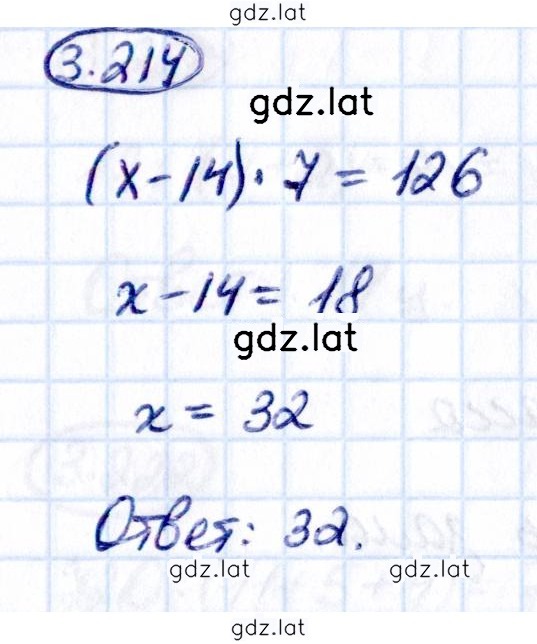 gdz.lat
3.214
gdz.lat
(x-14)·7=126
x-14=18
gdz.lat
x=32
Ответ: 32.
gdz.lat gdz.lat
gdz.lat